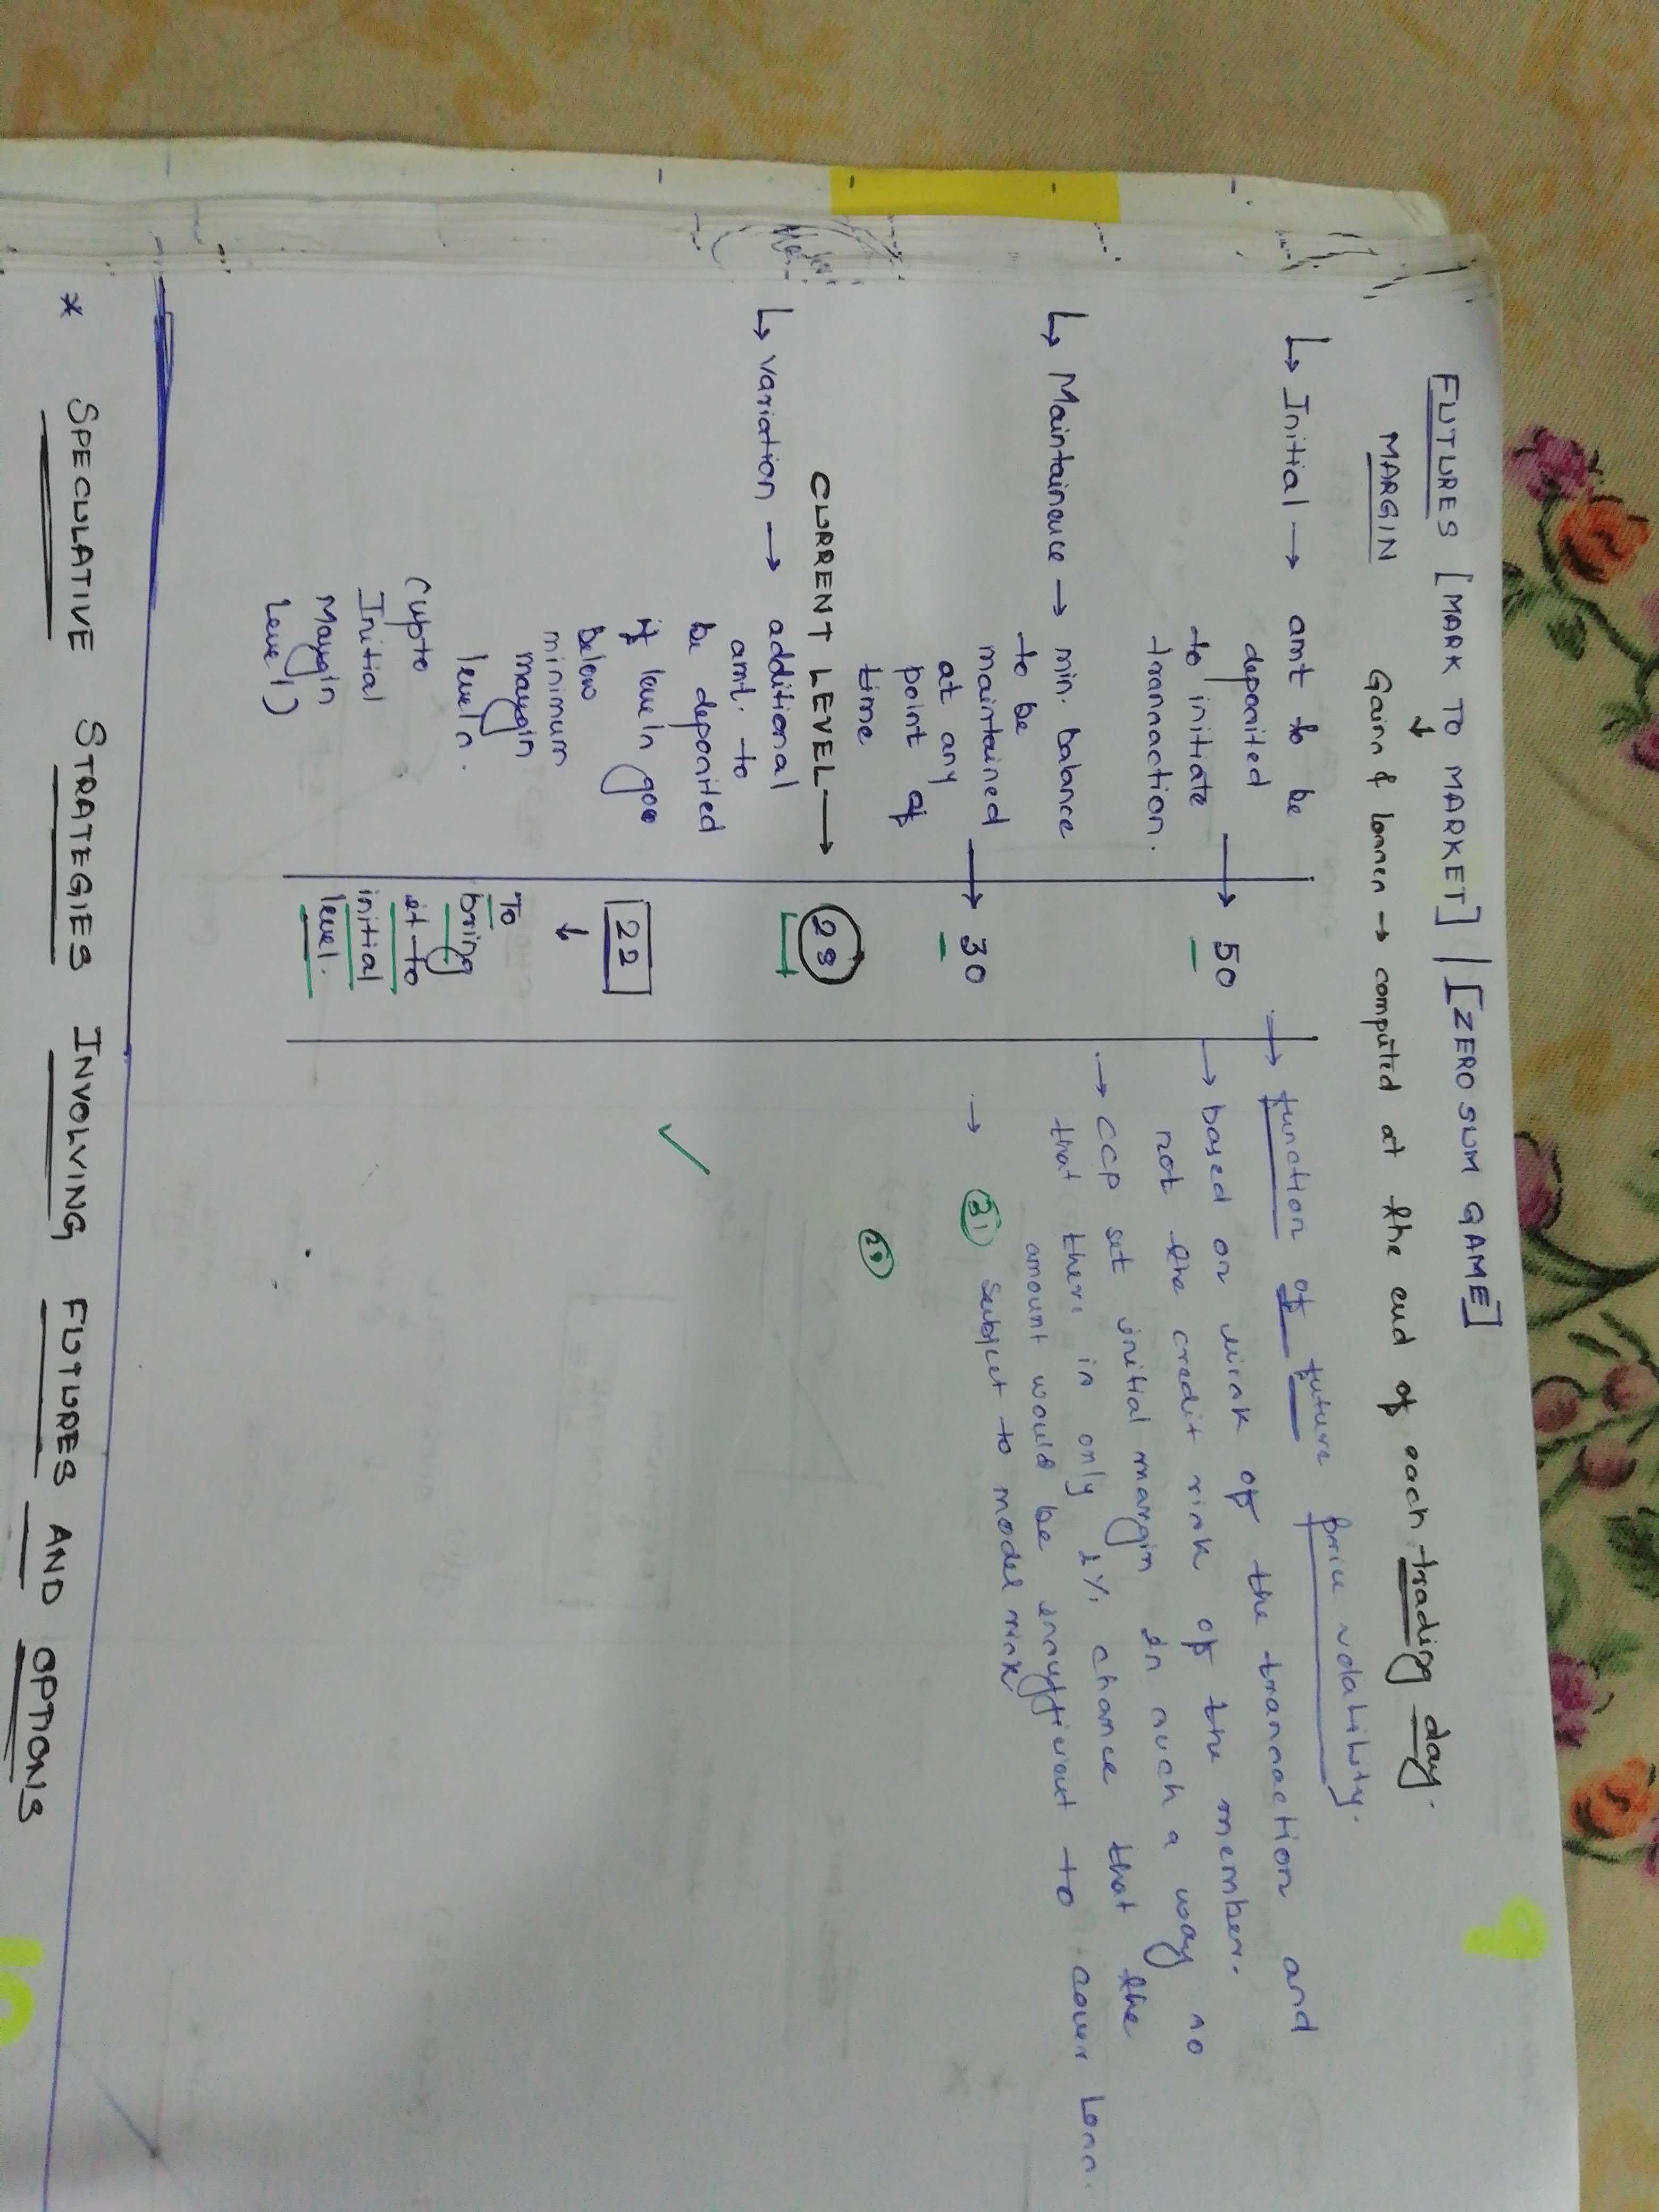 9
FUTURES [MARK TO MARKET] | [ZERO SUM GAME]
↓
MARGIN Gains & losses → computed at the end of each trading day.
↳ Initial → amt to be
deposited
to initiate
transaction.
→ 50
↳ Maintainence → min. balance
to be
maintained
at any
point of
time
→ 30
CURRENT LEVEL → 28
↳ variation → additional
amt. to
be deposited
if levels goes
below
minimum
margin
levels.
(upto
Initial
Margin
Level)
22
↓
To
bring
it to
initial
level.
→ function of future price volatility.
→ based on risk of the transaction and
not the credit risk of the members.
→ CCP set initial margin in such a way so
that there is only 1% chance that the
amount would be insufficient to cover loss.
→ 31 Subject to model risk
29
* SPECULATIVE STRATEGIES INVOLVING FUTURES AND OPTIONS
10